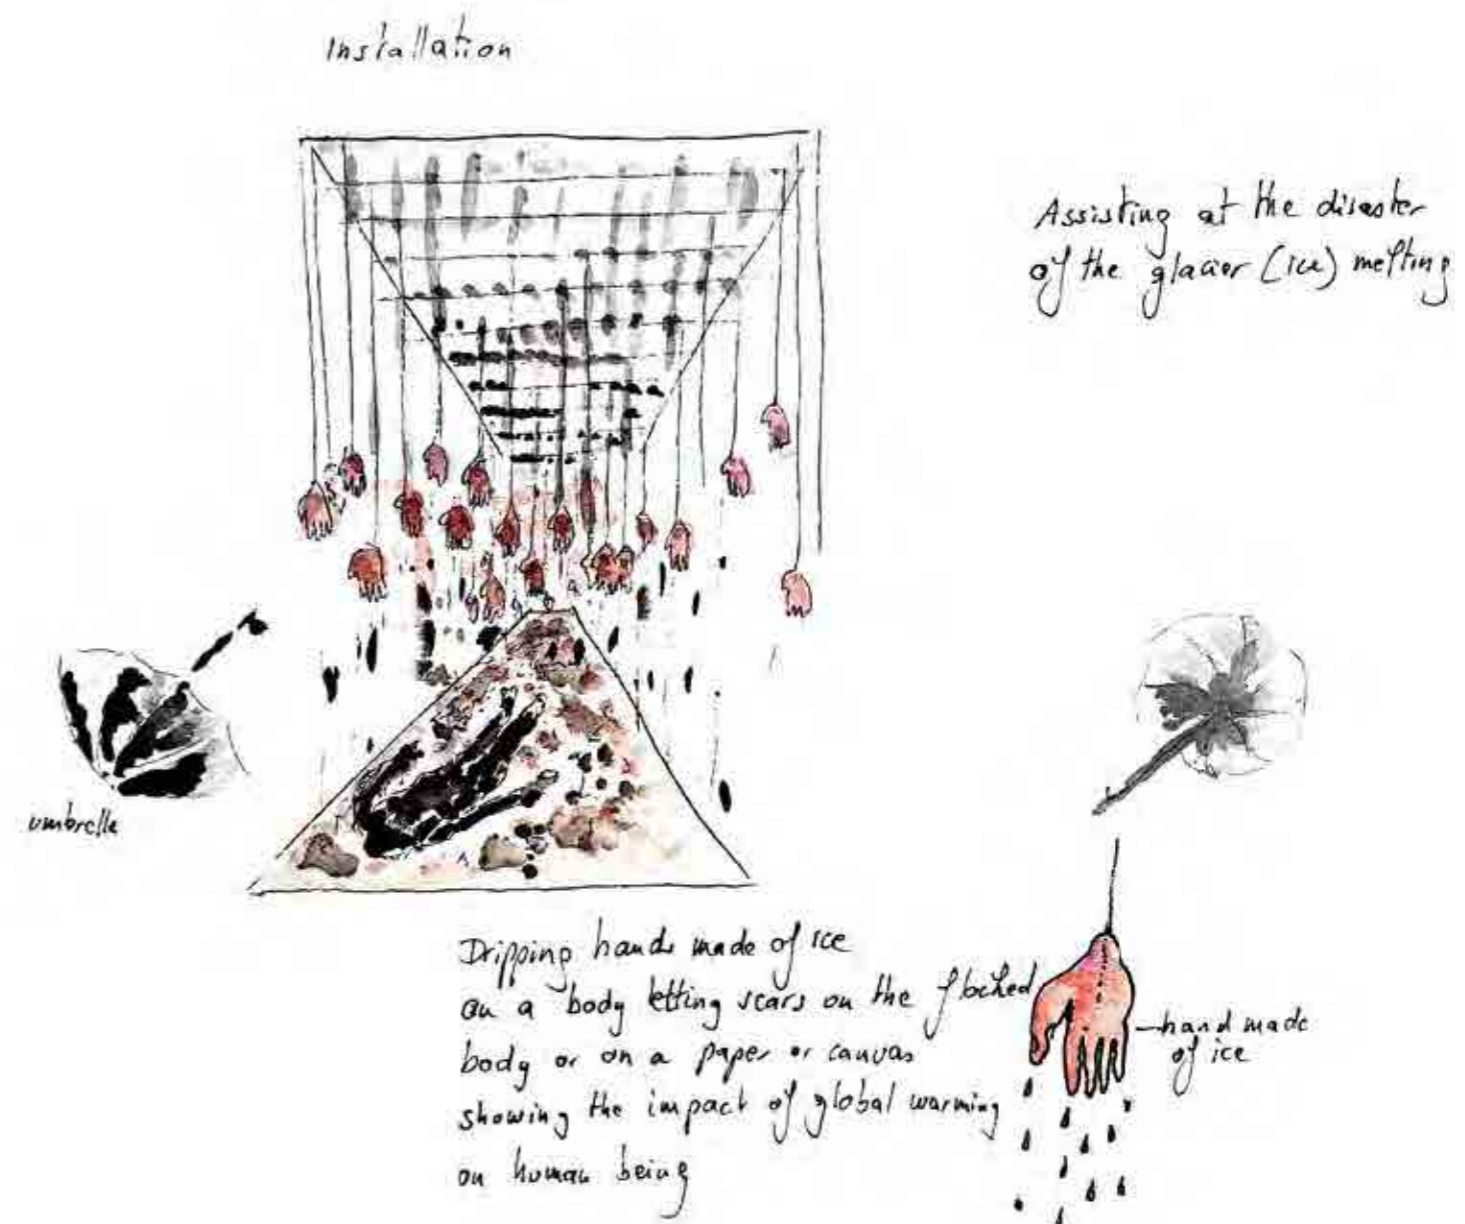 Installation
Assisting at the disaster
of the glacier (ice) melting
umbrella
Dripping hands made of ice
on a body letting scars on the floched
body or on a paper or canvas
showing the impact of global warming
on human being
hand made
of ice